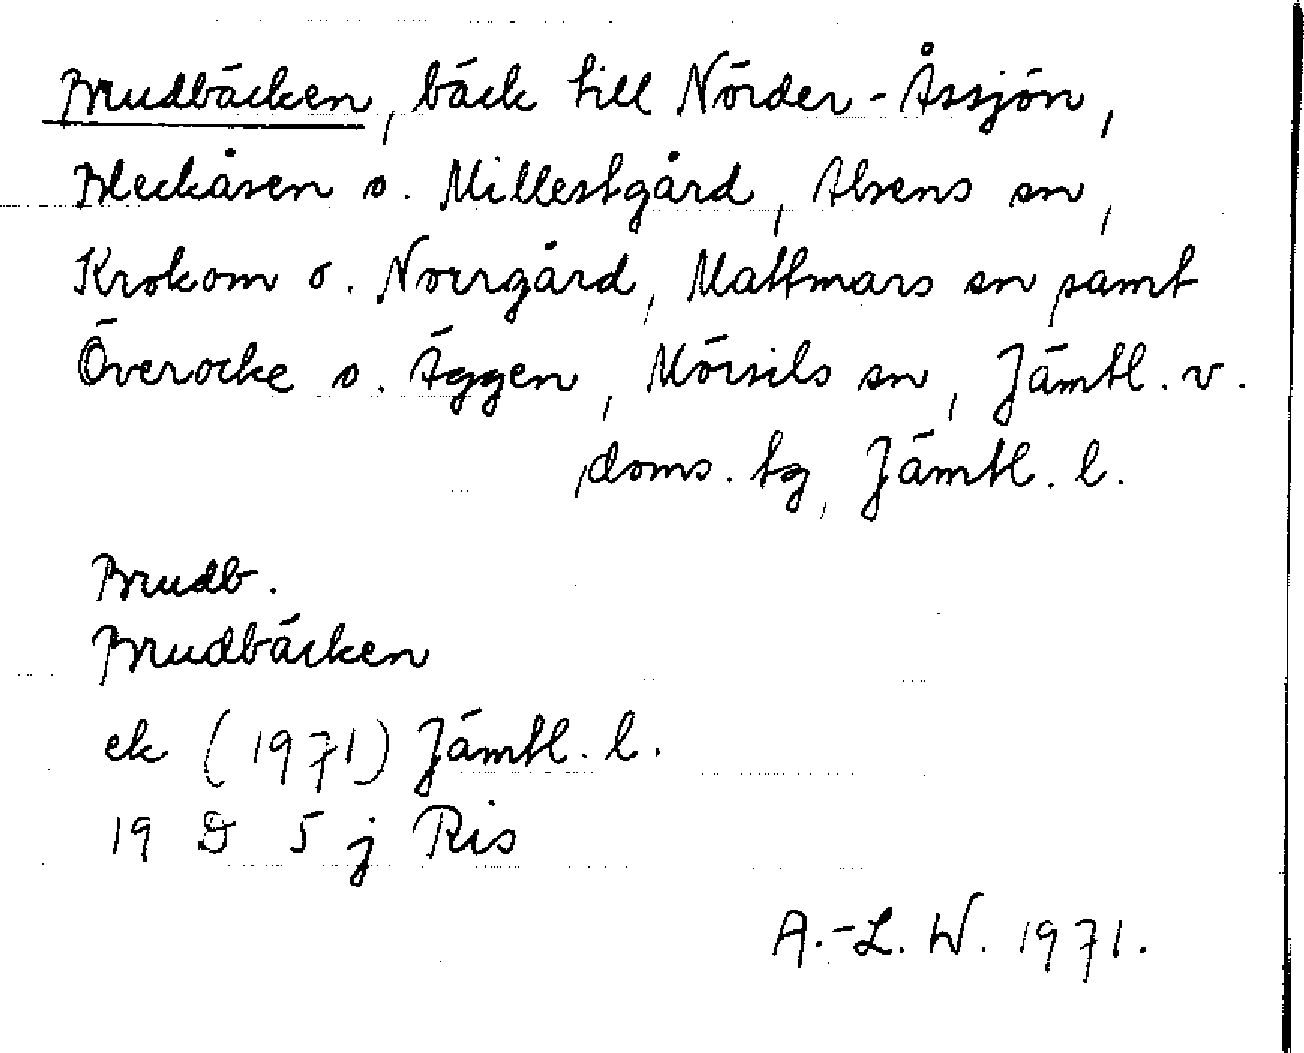 Brudbäcken, bäck till Nörder-Åssjön,
Bleckåsen o. Millestgård, Alsens sn,
Krokom o. Norrgård, Mattmars sn samt
Överocke o. Äggen, Mörsils sn, Jämtl. v.
doms. tg, Jämtl. l.
Brudb.
Brudbäcken
ek (1971) Jämtl. l.
19 D 5 j Ris
A.-L. W. 1971.